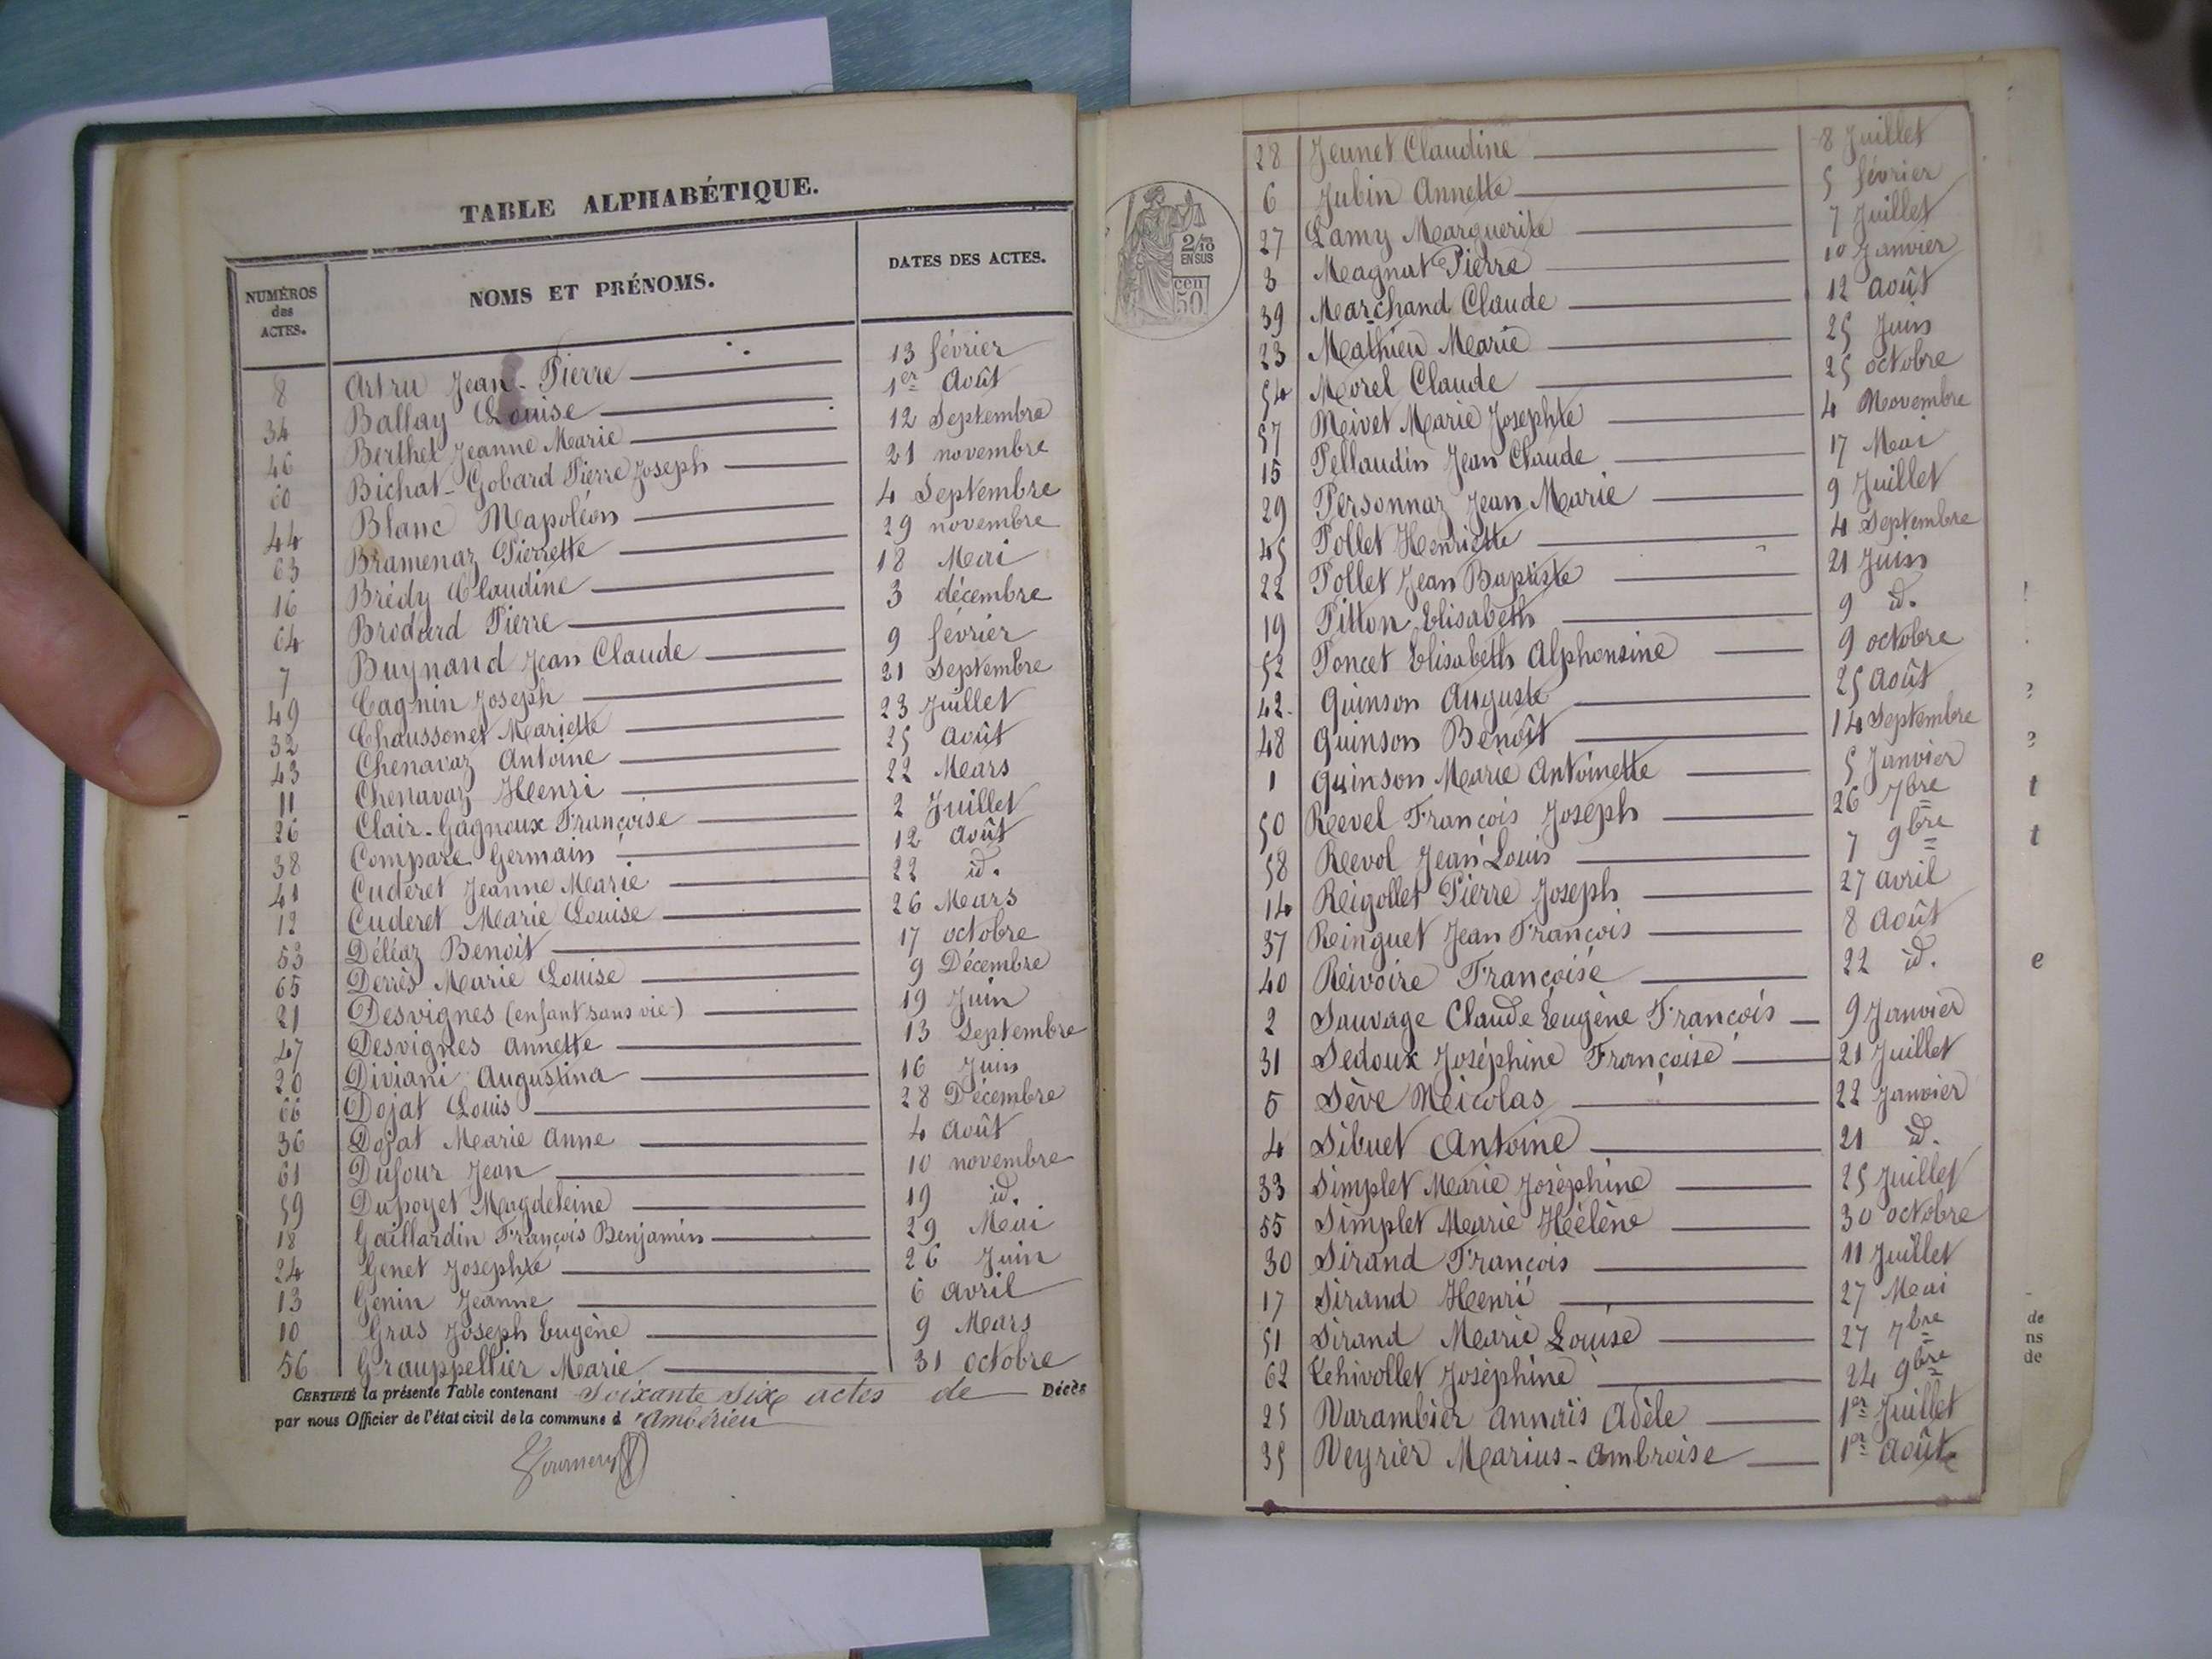 TABLE ALPHABÉTIQUE.
NUMÉROS des ACTES. NOMS ET PRÉNOMS. DATES DES ACTES.
8 Artru Jean-Pierre 13 février
34 Ballay Louise 1er Août
46 Berthet Jeanne Marie 12 Septembre
60 Bichat-Gobard Pierre Joseph 21 novembre
44 Blanc Napoléon 4 Septembre
63 Bramenaz Pierrette 29 novembre
16 Brédy Claudine 18 Mai
64 Brodard Pierre 3 décembre
7 Buynand Jean Claude 9 février
49 Cagnin Joseph 21 Septembre
32 Chaussonet Mariette 23 Juillet
43 Chenavaz Antoine 25 Août
11 Chenavaz Henri 22 Mars
26 Clair-Gagnoux Françoise 2 Juillet
38 Compare Germain 12 Août
41 Cuderet Jeanne Marie 22 id.
12 Cuderet Marie Louise 26 Mars
53 Déléaz Benoit 17 octobre
65 Derrès Marie Louise 9 Décembre
21 Desvignes (enfant sans vie) 19 Juin
47 Desvignes Annette 13 Septembre
20 Diviani Augustina 16 Juin
66 Dojat Louis 28 Décembre
36 Dojat Marie Anne 4 Août
61 Dufour Jean 10 novembre
59 Dupoyet Magdeleine 19 id.
18 Gaillardin François Benjamin 29 Mai
24 Genet Josephte 26 Juin
13 Genin Jeanne 6 avril
10 Gras Joseph Eugène 9 Mars
56 Grauppellier Marie 31 octobre
CERTIFIÉ la présente Table contenant Soixante Six actes de Décès
par nous Officier de l'état civil de la commune d'Ambérieu
2/10
EN SUS
cen
50
28 Jeunet Claudine 8 Juillet
6 Jubin Annette 5 février
27 Lamy Marguerite 7 Juillet
3 Magnat Pierre 10 Janvier
39 Marchand Claude 12 Août
23 Mathieu Marie 25 Juin
54 Morel Claude 25 octobre
57 Nivet Marie Josephte 4 Novembre
15 Pellaudin Jean Claude 17 Mai
29 Personnaz Jean Marie 9 Juillet
45 Pollet Henriette 4 Septembre
22 Pollet Jean Baptiste 21 Juin
19 Pitton Elisabeth 9 id.
52 Poncet Elisabeth Alphonsine 9 octobre
42 Quinson Auguste 25 Août
48 Quinson Benoît 14 Septembre
1 Quinson Marie Antoinette 5 Janvier
50 Revel François Joseph 26 7bre
58 Revol Jean Louis 7 9bre
14 Rigollet Pierre Joseph 27 avril
37 Ringuet Jean François 8 Août
40 Rivoire Françoise 22 id.
2 Sauvage Claude Eugène François 9 Janvier
31 Sedoux Joséphine Françoise 21 Juillet
5 Sève Nicolas 22 Janvier
4 Sibuet Antoine 21 id.
33 Simplet Marie Joséphine 25 Juillet
55 Simplet Marie Hélène 30 octobre
30 Sirand François 11 Juillet
17 Sirand Henri 27 Mai
51 Sirand Marie Louise 27 7bre
62 Tehivollet Joséphine 24 9bre
25 Varambier Annaïs Adèle 1er Juillet
35 Veyrier Marius-Ambroise 1er Août
t
t
e
de
ns
de